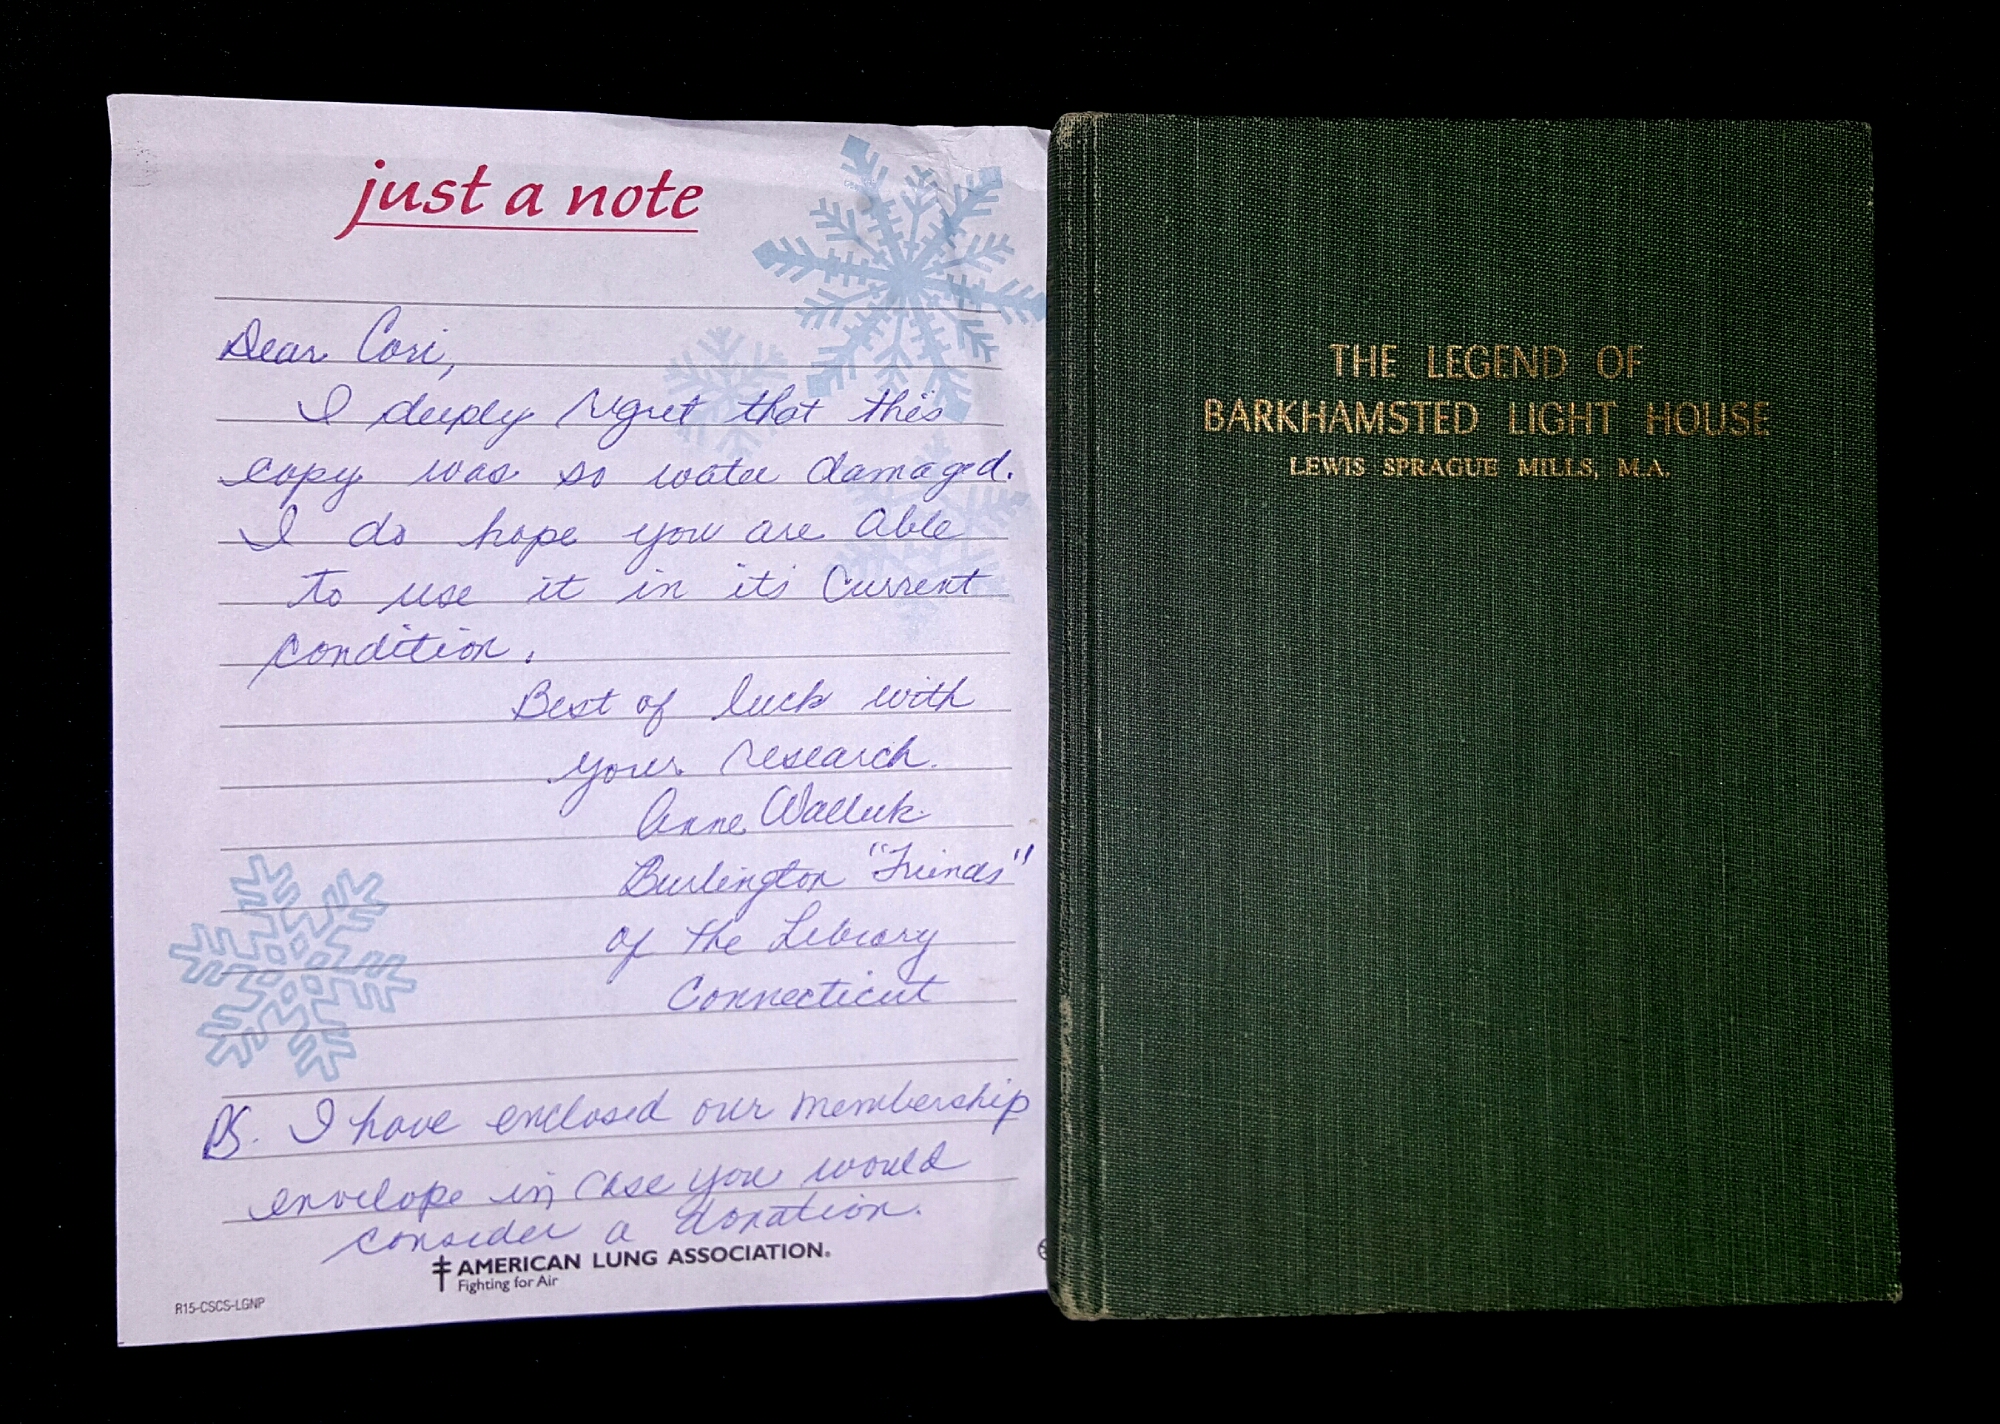 just a note
Dear Cori,
I deeply regret that this
copy was so water damaged.
I do hope you are able
to use it in its current
condition.
Best of luck with
your research.
Anne
Burlington "Friends"
of the Library
Connecticut
PS. I have enclosed our membership
envelope in case you would
consider a donation.
AMERICAN LUNG ASSOCIATION®
Fighting for Air
R15-CSCS-LGNP
THE LEGEND OF
BARKHAMSTED LIGHT HOUSE
LEWIS SPRAGUE MILLS, M.A.